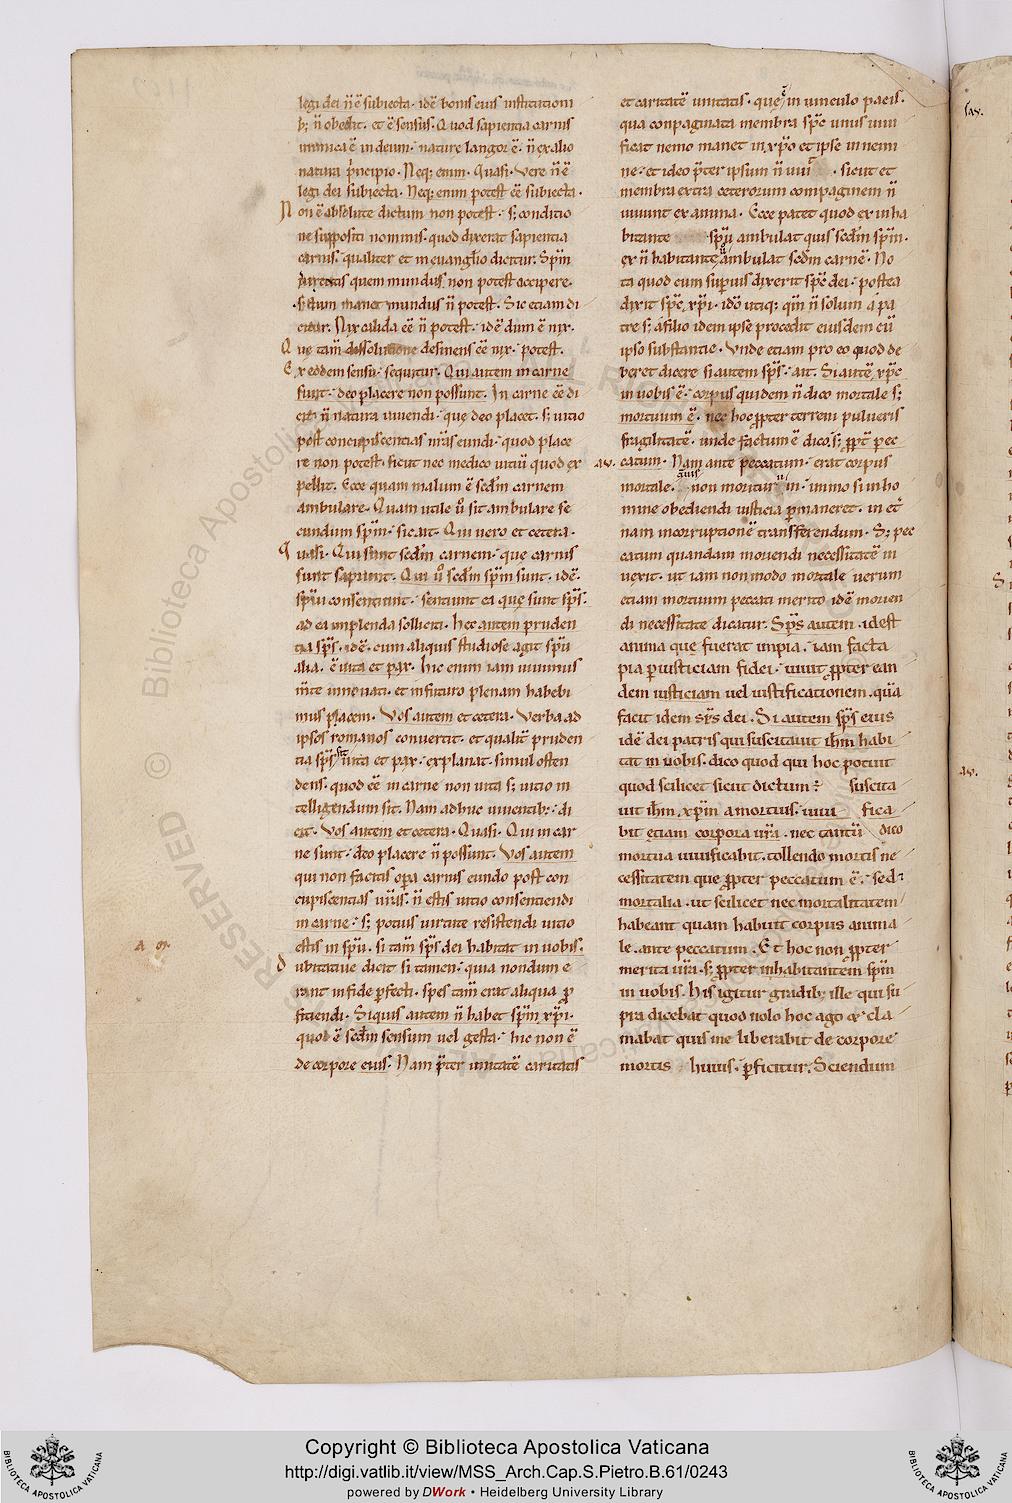 legi dei n̄ ē subiecta · idē bonis eius institutioni
b; n̄ obedit · et ē sensus · Quod sapientia carnis
inimica ē in deum · nature langor ē · n̄ ex alio
natura principio · Neq; enim · Quasi · Vere n̄ ē
legi dei subiecta · Neq; enim potest eē subiecta ·
Non ē absolute dictum non potest · s; conditio
ne suppositi nominis · quod dixerat sapientia
carnis · qualiter et in euanglio dicitur · Spm̄
ueritatis quem mundus non potest accipere ·
dum manet mundus n̄ potest · Sic etiam di
citur · Nix calida eē n̄ potest · idē dum ē nix ·
Que tam̄ dissolutione desinens eē nix · potest ·
Ex eodem sensu · sequitur · Qui autem in carne
sunt · deo placere non possunt · In carne eē di
cit n̄ natura uiuendi · que deo placet · s; uitio
post concupiscentias m̄as eundi · quod place
re non potest · sicut nec medico uitiū quod ex
pellit · Ecce quam malum ē scdm̄ carnem
ambulare · Quam utile u° sit ambulare se
cundum spm̄ · sic ait · Qui uero et cetera ·
Quasi · Qui sunt scdm̄ carnem · que carnis
sunt sapiunt · Qui u° scdm̄ spm̄ sunt · idē ·
spū consentiunt · sentiunt ea que sunt sp̄s ·
ad ea implenda solliciti · hec autem pruden
tia sp̄s · idē · cum aliquis studiose agit spū
alia · ē uita et pax · hic enim iam uiuimus
m̄te innouati · et in futuro plenam habebi
mus pacem · Vos autem et cetera · Verba ad
ipsos romanos conuertit · et qualit̄ pruden
tia sp̄s sit uita et pax · explanat · simul osten
dens · quod eē in carne non uita s; uitio in
telligendum sit · Nam adhuc uiuentib; · di
cit · Vos autem et cetera · Quasi · Qui in car
ne sunt · deo placere n̄ possunt · Vos autem
qui non facitis opa carnis eundo post con
cupiscentias · n̄ estis uitio consentiendi
in carne · s; potius uirtute resistendi uitio
estis in spū · si tam̄ sp̄s dei habitat in uobis ·
a
Dubitatiue dicit si tamen · quia nondum e
rant in fide pfecti · spes tam̄ erat aliqua p
ficiendi · Siquis autem n̄ habet spm̄ xp̄i ·
quod ē scdm̄ sensum uel gesta · hic non ē
de corpore eius · Nam p̄ter unitatē caritatis
et caritatē unitatis · quę ē in uinculo pacis ·
qua conpaginata membra sp̄c unus uiui
ficat nemo manet in xp̄o et ipse in nemi
ne · et ideo p̄ter ipsum n̄ uiui · sicut et
membra extra ceterorum compaginem n̄
uiuunt ex anima · Ecce patet quod ex inha
bitante spū ambulat quis scdm̄ spm̄ ·
ex n̄ habitante u° ambulat scdm̄ carnē · No
ta quod cum superius dixerit sp̄c dei · postea
dixit sp̄c xp̄i · idō utiq; · qm̄ n̄ solum a pa
tre s; a filio idem ipse procedit eiusdem cū
ipso substantie · Vnde etiam pro eo quod de
beret dicere si autem sp̄s · ait · Si autē xp̄c
in uobis ē · corpus quidem n̄ dico mortale s;
mortuum ē · nec hoc ppter terreni pulueris
fragilitatē · unde factum ē dico, s; ppt̄ pec
au · catum · Nam ante peccatum · erat corpus
mortale · quis non moriturum · immo si in ho
mine obediendi iusticia pmaneret · in et̄
nam incorruptionē transferendum · S; pec
catum quandam moriendi necessitatē in
uexit · ut iam non modo mortale uerum
etiam mortuum peccati merito idē morien
di necessitate dicatur · Sp̄s autem · idest
anima que fuerat impia · iam facta
pia p iusticiam fidei · uiuit ppter ean
dem iusticiam uel iustificationem · quā
facit idem sp̄s dei · Si autem sp̄s eius
idē dei patris qui suscitauit ih̄m habi
tat in uobis · dico quod qui hoc potuit
quod scilicet sicut dictum ē suscita
uit ih̄m xp̄m a mortuis · uiui fica
bit etiam corpora ur̄a · nec tantū dico
mortua uiuificabit · tollendo mortis ne
cessitatem que ppter peccatum ē · sed
mortalia · ut scilicet nec mortalitatem
habeant quam habuit corpus anima
le · ante peccatum · Et hoc non ppter
merita ur̄a · s; ppter inhabitantem spm̄
in uobis · His igitur gradib; ille qui su
pra dicebat quod uolo hoc ago & cla
mabat quis me liberabit de corpore
mortis huius · pficitur · Sciendum
au ·
Copyright © Biblioteca Apostolica Vaticana
http://digi.vatlib.it/view/MSS_Arch.Cap.S.Pietro.B.61/0243
powered by DWork • Heidelberg University Library
BIBLIOTECA APOSTOLICA VATICANA
BIBLIOTECA APOSTOLICA VATICANA